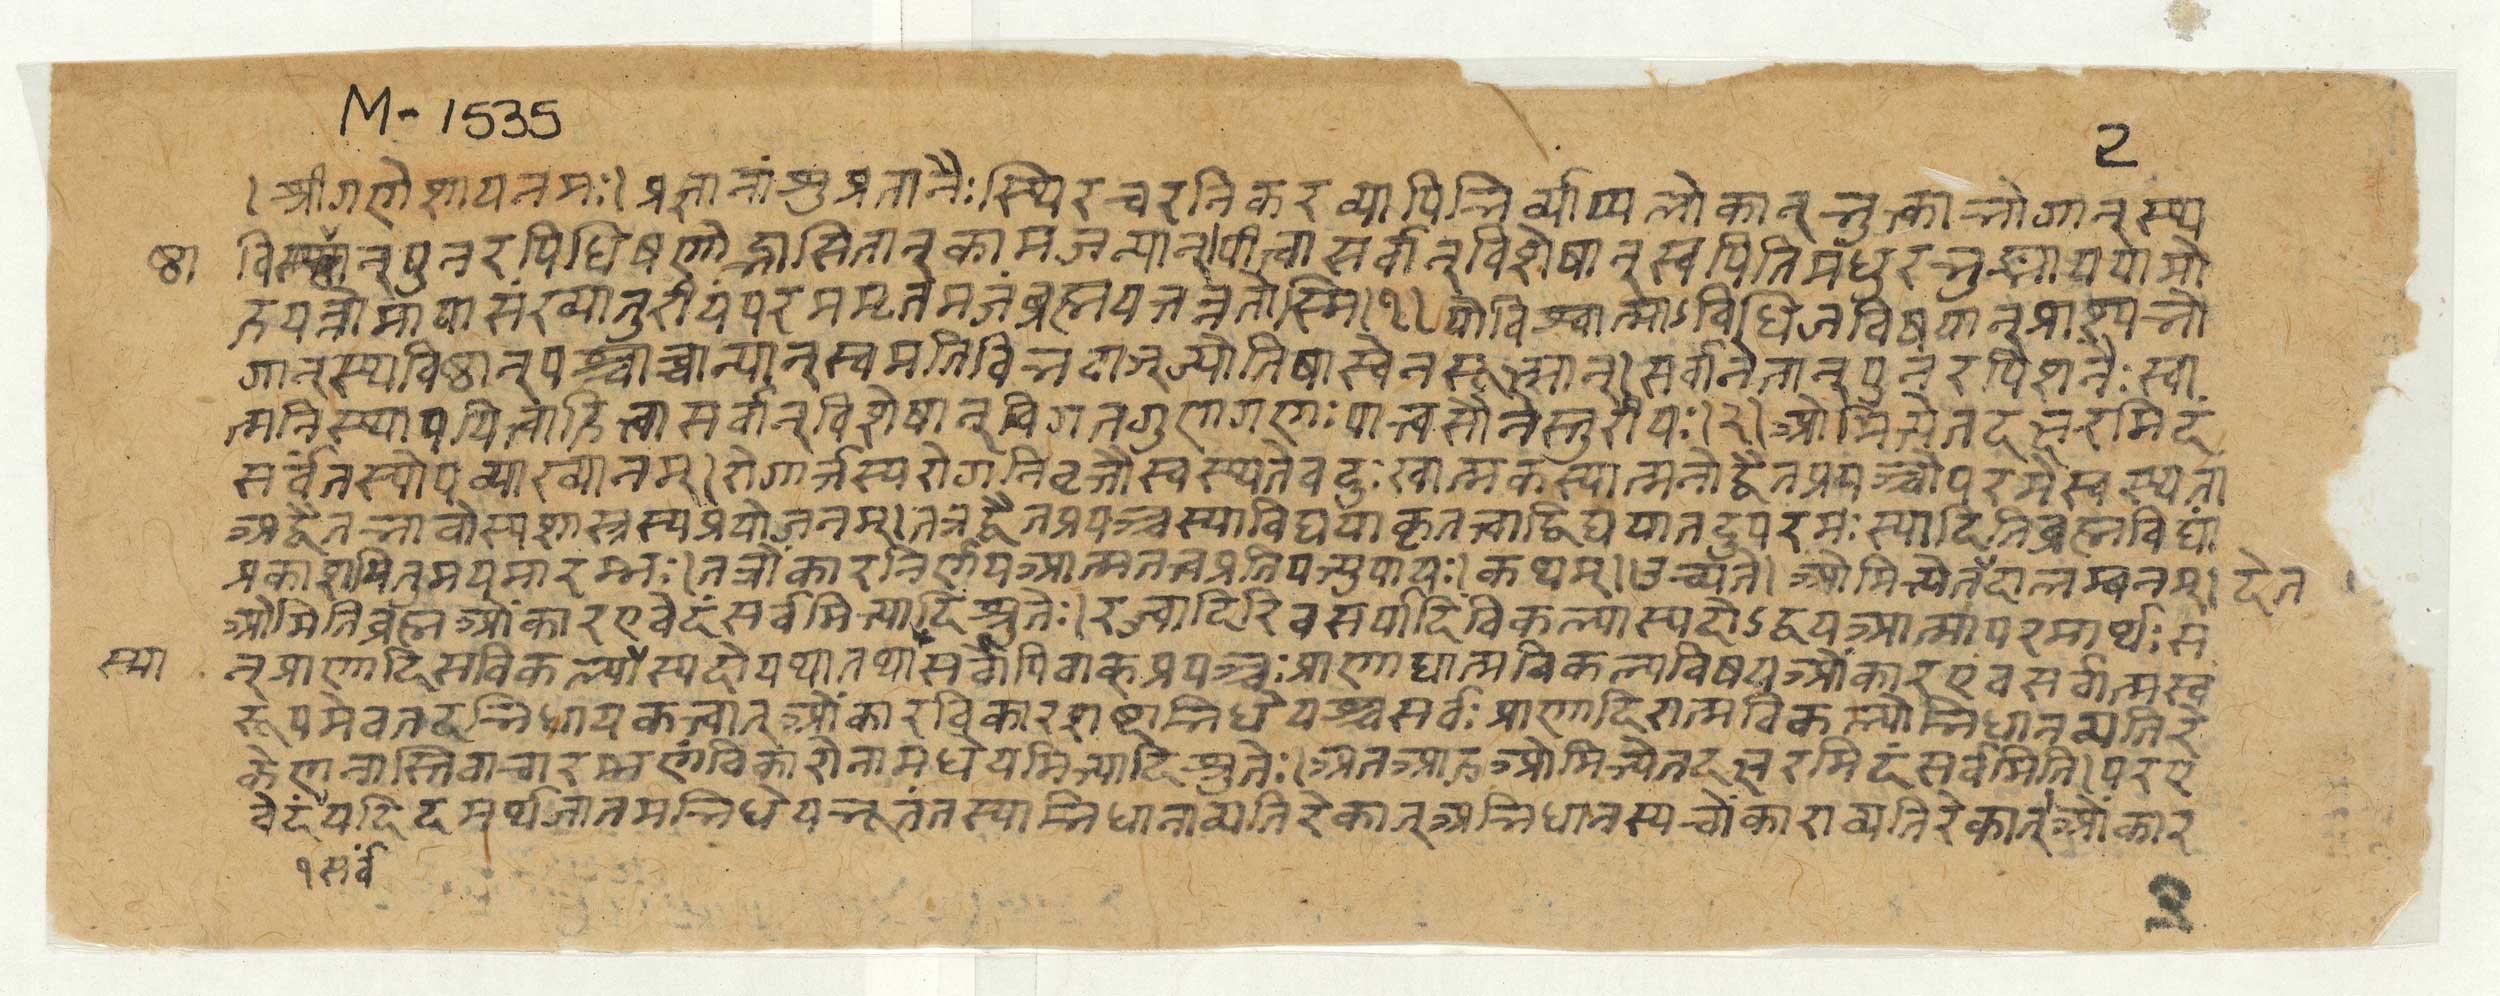 M-1535
2
। श्रीगणेशायनमः। प्रज्ञानांशुप्रतानैःस्थिरचरनिकरव्यापिभिर्व्याप्यलोकान्भुक्त्वाभोगान्स्थ
ष्ठा
विष्ठान्पुनरपिधिषणोद्भासितान्कामजन्यान्।पीत्वासर्वान्विशेषान्स्वपितिमधुरभुङ्माययाभो
जयन्नोमायासंख्यातुरीयंपरममृतमजंब्रह्मयत्तन्नतोस्मि।१। योविश्वात्माऽविधिजविषयान्प्राश्यभो
गान्स्थविष्ठान्पश्चाच्चान्यान्स्वमतिविभवाज्ज्योतिषास्वेनसूक्ष्मान्।सर्वानेतान्पुनरपिशनैःस्वा
त्मनिस्थापयित्वाहित्वासर्वान्विशेषान्विगतगुणगणःपात्वसौनस्तुरीयः।२।ओमित्येतदक्षरमिदं
सर्वंतस्योपव्याख्यानम्।रोगार्तस्यरोगनिवृत्तौस्वस्थतेवदुःखात्मकस्यात्मनोद्वैतप्रपञ्चोपरमेस्वस्थता
अद्वैतभावोस्यशास्त्रस्यप्रयोजनम्।तत्रद्वैतप्रपञ्चस्याविद्ययाकृतत्वाद्विद्ययातदुपरमःस्यादितिब्रह्मविद्यां
प्रकाशयितुमयमारम्भः।तत्रोंकारनिर्णयआत्मतत्त्वप्रतिपत्त्युपायः।कथम्।उच्यते।ओमित्येतदालम्बनम्। देत
ओमितिब्रह्मओंकारएवेदंसर्वमित्यादिश्रुतेः।रज्वादिरिवसर्पादिविकल्पास्पदोऽद्वयआत्मापरमार्थःस
स्या
न्प्राणादिसविकल्पास्पदोयथातथासर्वोपिवाक्प्रपञ्चःप्राणाद्यात्मविकल्पविषयओंकारएवसर्वात्मस्व
रूपमेवतदभिधायकत्वात्ओंकारविकारशब्दाभिधेयश्चसर्वःप्राणादिरात्मविकल्पोभिधानव्यतिरे
केणनास्तिवाचारम्भणंविकारोनामधेयमित्यादिश्रुतेः।अतआहओमित्येतदक्षरमिदंसर्वमिति।परए
वेदंयदिदमर्थजातमभिधेयभूतंतस्याभिधानाव्यतिरेकात्अभिधानस्यचोंकाराव्यतिरेकात्ओंकार
१सर्वं
2